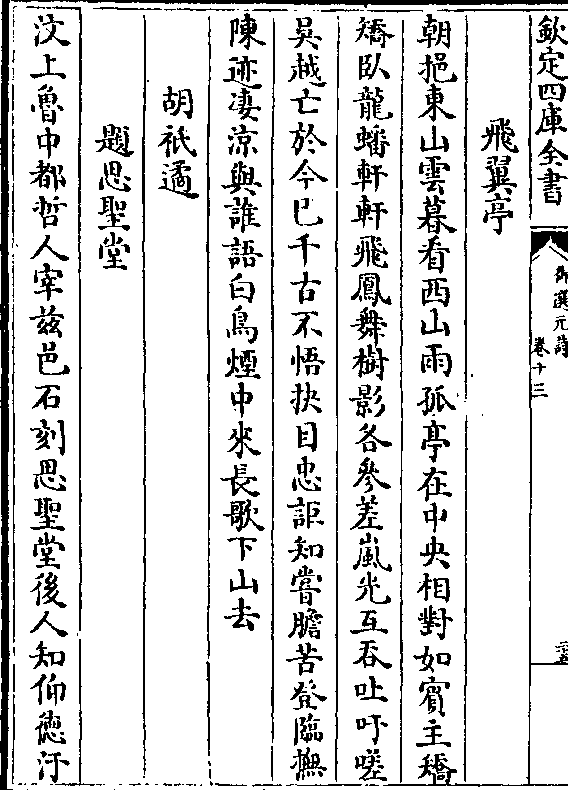 欽定四庫全書
御選元詩
卷十三
飛翼亭
朝挹東山雲暮看西山雨孤亭在中央相對如賓主矯
矯臥龍蟠軒軒飛鳳舞樹影各參差嵐光互吞吐吁嗟
吳越亡於今已千古不悟抉目忠詎知嘗膽苦登臨撫
陳迹凄涼與誰語白鳥煙中來長歌下山去
胡祇遹
題思聖堂
汶上魯中都哲人宰兹邑石刻思聖堂後人知仰德汙